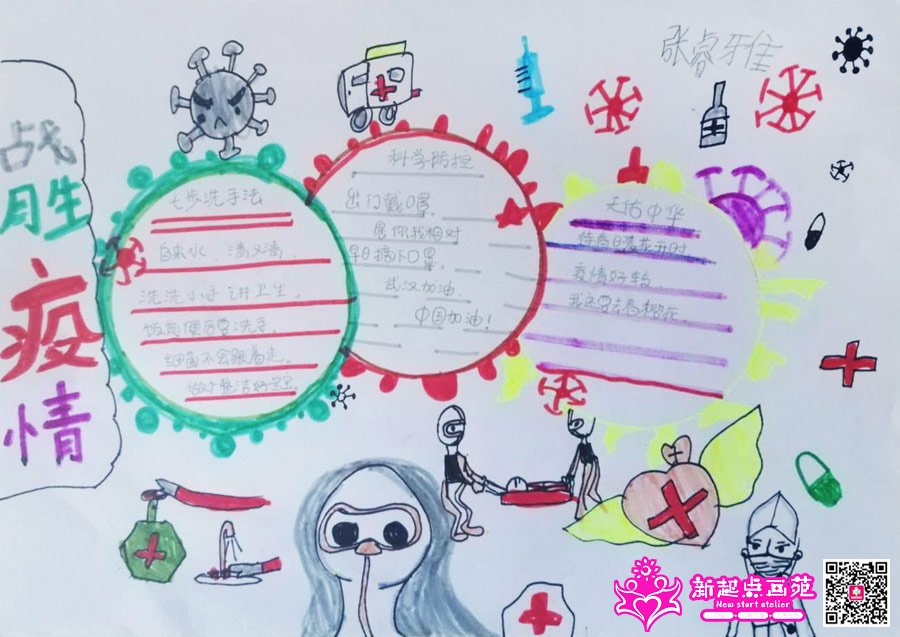 张睿雅佳
战
胜
疫
情
七步洗手法
自来水 清又清
洗洗小手讲卫生。
饭前便后要洗手。
细菌不会跟着走。
做个整洁好宝宝。
科学防控
出门戴口罩。
愿你我相对
早日摘下口罩。
武汉加油。
中国加油!
天佑中华
待春日樱花开时
疫情好转
我还要去看樱花。
新起点画苑
New start atelier